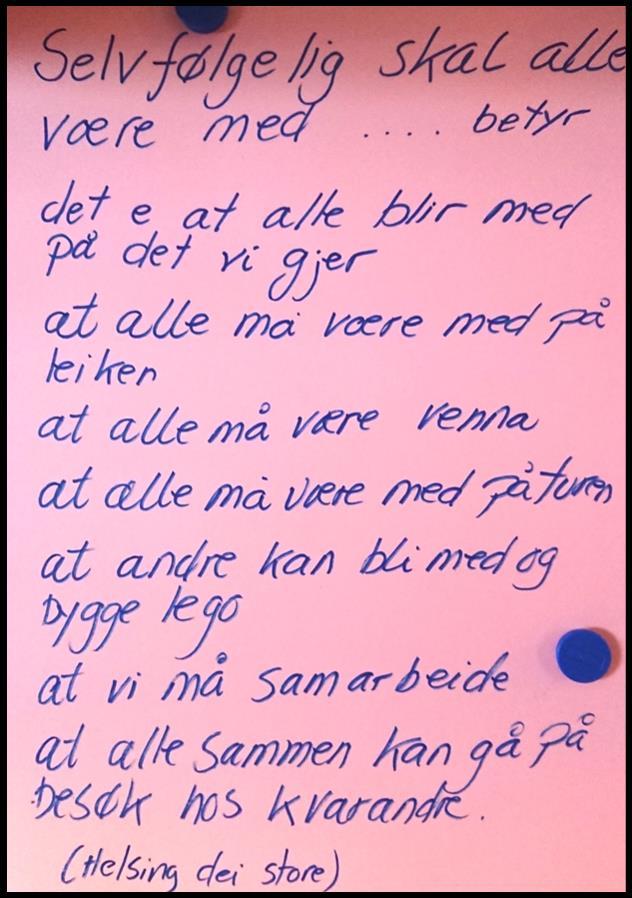 Selvfølgelig skal alle
være med .... betyr
det e at alle blir med
på det vi gjer
at alle må være med på
leiken
at alle må være venna
at alle må være med på turen
at andre kan bli med og
bygge lego
at vi må samarbeide
at alle sammen kan gå på
besøk hos kvarandre.
(Helsing dei store)